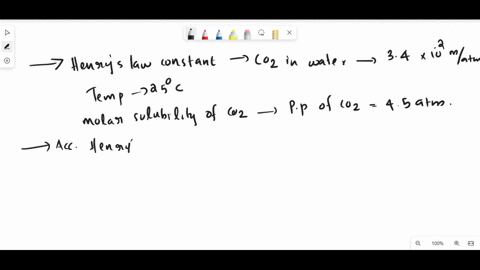 ⟶ Henry's law constant → CO2 in water → 3.4 × 10² m/atm
Temp → 25°C
molar solubility of CO2 → P.p of CO2 = 4.5 atm.
⟶ Acc. Henry'
100%